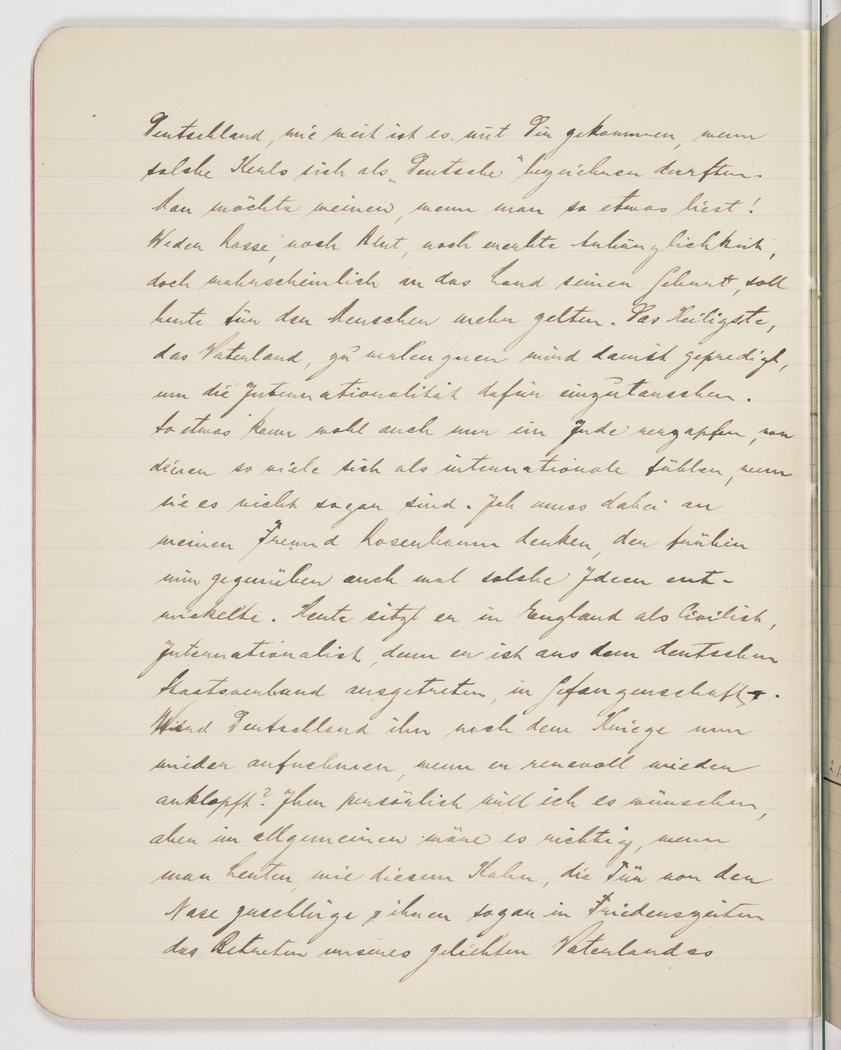 Deutschland, wie weit ist es mit Dir gekommen, wenn
solche Kerls sich als „Deutsche" bezeichnen durften.
Man möchte weinen, wenn man so etwas liest!
Weder Rasse, noch Blut, noch ererbte Anhänglichkeit,
doch wahrscheinlich an das Land seiner Geburt, soll
heute für den Menschen mehr gelten. Das Heiligste,
das Vaterland, zu verleugnen wird damit gepredigt,
um die Internationalität dafür einzutauschen.
So etwas kann wohl auch nur ein Jude verzapfen, von
denen so viele sich als internationale fühlen, wenn
sie es nicht sogar sind. Ich muss dabei an
meinen Freund Rosenbaum denken, der früher
mir gegenüber auch mal solche Ideen ent-
wickelte. Heute sitzt er in England als Civilist,
Internationalist, denn er ist aus dem deutschen
Staatsverband ausgetreten, in Gefangenschaft.
Wird Deutschland ihn nach dem Kriege nun
wieder aufnehmen, wenn er reuevoll wieder
anklopft? Ihm persönlich will ich es wünschen,
aber im allgemeinen wäre es richtig, wenn
man Leuten, wie diesem Hahn, die Tür vor der
Nase zuschlüge, ihnen sogar in Friedenszeiten
das Betreten unseres geliebten Vaterlandes